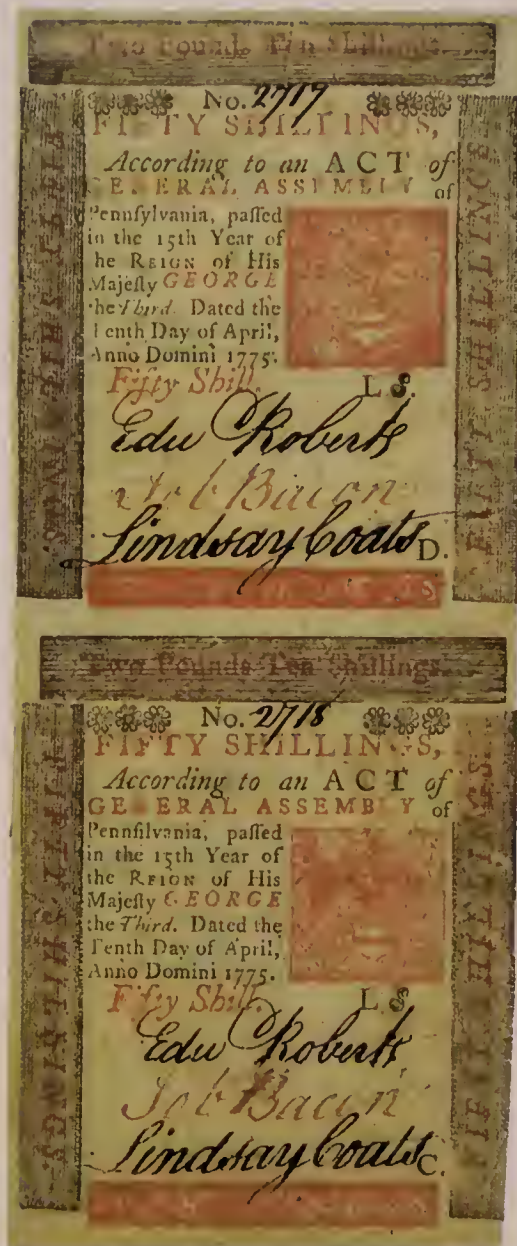 Two Pounds Ten Shillings
No. 2717
FIFTY SHILLINGS,
According to an ACT of
GENERAL ASSEMBLY of
Pennſylvania, paſſed
in the 15th Year of
the REIGN of His
Majeſty GEORGE
the Third. Dated the
Tenth Day of April,
Anno Domini 1775.
Fifty Shill. L S.
Edw Roberts
Job Bacon
Lindsay Coats D.
FIFTY SHILLINGS.
FIFTY SHILLINGS.
Two Pounds Ten Shillings.
No. 2718
FIFTY SHILLINGS,
According to an ACT of
GENERAL ASSEMBLY of
Pennſilvania, paſſed
in the 15th Year of
the REIGN of His
Majeſty GEORGE
the Third. Dated the
Tenth Day of April,
Anno Domini 1775.
Fifty Shill. L S.
Edw Roberts
Job Bacon
Lindsay Coats C.
FIFTY SHILLINGS.
FIFTY SHILLINGS.